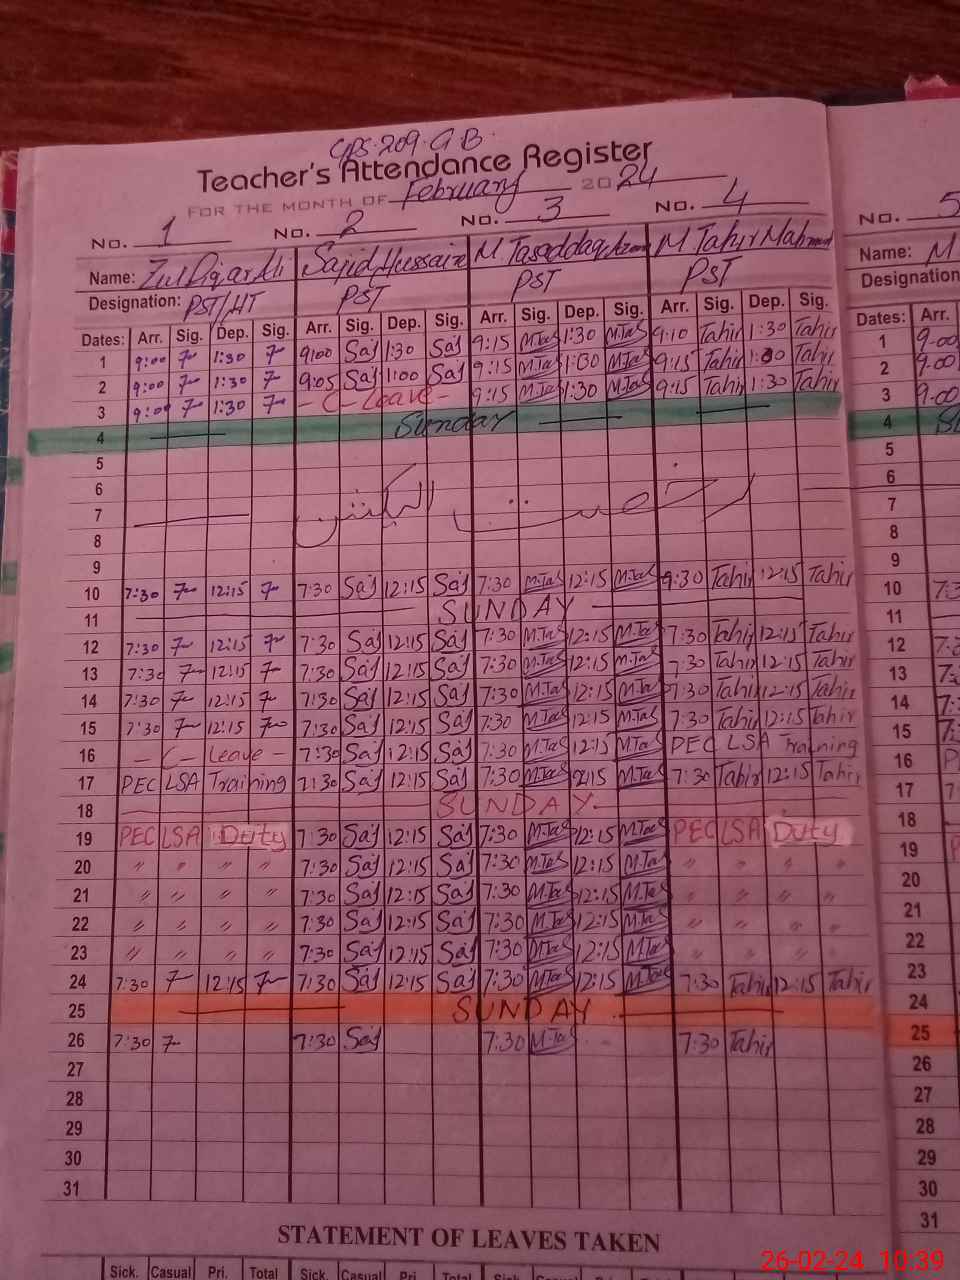 GPS. 209. G B.
Teacher's Attendance Register
FOR THE MONTH OF February 2024
No. 1 No. 2 No. 3 No. 4 No. 5
Name: Zulfiqar Ali Sajid Hussain M. Tasaddaq M. Tahir Mahmood Name: M
Designation: PST/HT PST PST PST Designation
Dates: Arr. Sig. Dep. Sig. Arr. Sig. Dep. Sig. Arr. Sig. Dep. Sig. Arr. Sig. Dep. Sig. Dates: Arr.
1 9:00 1:30 9:00 Saj 1:30 Saj 9:15 M.Tas 1:30 M.Tas 9:10 Tahir 1:30 Tahir 1 9.00
2 9:00 1:30 9:05 Saj 1:00 Saj 9:15 M.Tas 1:00 M.Tas 9:15 Tahir 1:30 Tahir 2 9.00
3 9:00 1:30 - C - Leave - 9:15 M.Tas 1:30 M.Tas 9:15 Tahir 1:30 Tahir 3 9.00
4 Sunday 4
5 5
6 رخصت الیکشن 6
7 7
8 8
9 9
10 7:30 12:15 7:30 Saj 12:15 Saj 7:30 M.Tas 12:15 M.Tas 9:30 Tahir 12:15 Tahir 10
11 SUNDAY 11
12 7:30 12:15 7:30 Saj 12:15 Saj 7:30 M.Tas 12:15 M.Tas 7:30 Tahir 12:15 Tahir 12
13 7:30 12:15 7:30 Saj 12:15 Saj 7:30 M.Tas 12:15 M.Tas 7:30 Tahir 12:15 Tahir 13
14 7:30 12:15 7:30 Saj 12:15 Saj 7:30 M.Tas 12:15 M.Tas 7:30 Tahir 12:15 Tahir 14
15 7:30 12:15 7:30 Saj 12:15 Saj 7:30 M.Tas 12:15 M.Tas 7:30 Tahir 12:15 Tahir 15
16 - C - Leave - 7:30 Saj 12:15 Saj 7:30 M.Tas 12:15 M.Tas PEC LSA Training 16
17 PEC LSA Training 7:30 Saj 12:15 Saj 7:30 M.Tas 12:15 M.Tas 7:30 Tahir 12:15 Tahir 17
18 SUNDAY. 18
19 PEC LSA Duty 7:30 Saj 12:15 Saj 7:30 M.Tas 12:15 M.Tas PEC LSA Duty 19
20 " " " " 7:30 Saj 12:15 Saj 7:30 M.Tas 12:15 M.Tas " " " " 20
21 " " " " 7:30 Saj 12:15 Saj 7:30 M.Tas 12:15 M.Tas " " " " 21
22 " " " " 7:30 Saj 12:15 Saj 7:30 M.Tas 12:15 M.Tas " " " " 22
23 " " " " 7:30 Saj 12:15 Saj 7:30 M.Tas 12:15 M.Tas " " " " 23
24 7:30 12:15 7:30 Saj 12:15 Saj 7:30 M.Tas 12:15 M.Tas 7:30 Tahir 12:15 Tahir 24
25 SUNDAY 25
26 7:30 7:30 Saj 7:30 M.Tas 7:30 Tahir 26
27 27
28 28
29 29
30 30
31 31
STATEMENT OF LEAVES TAKEN
Sick. Casual Pri. Total Sick. Casual Pri. Total
26-02-24 10:39